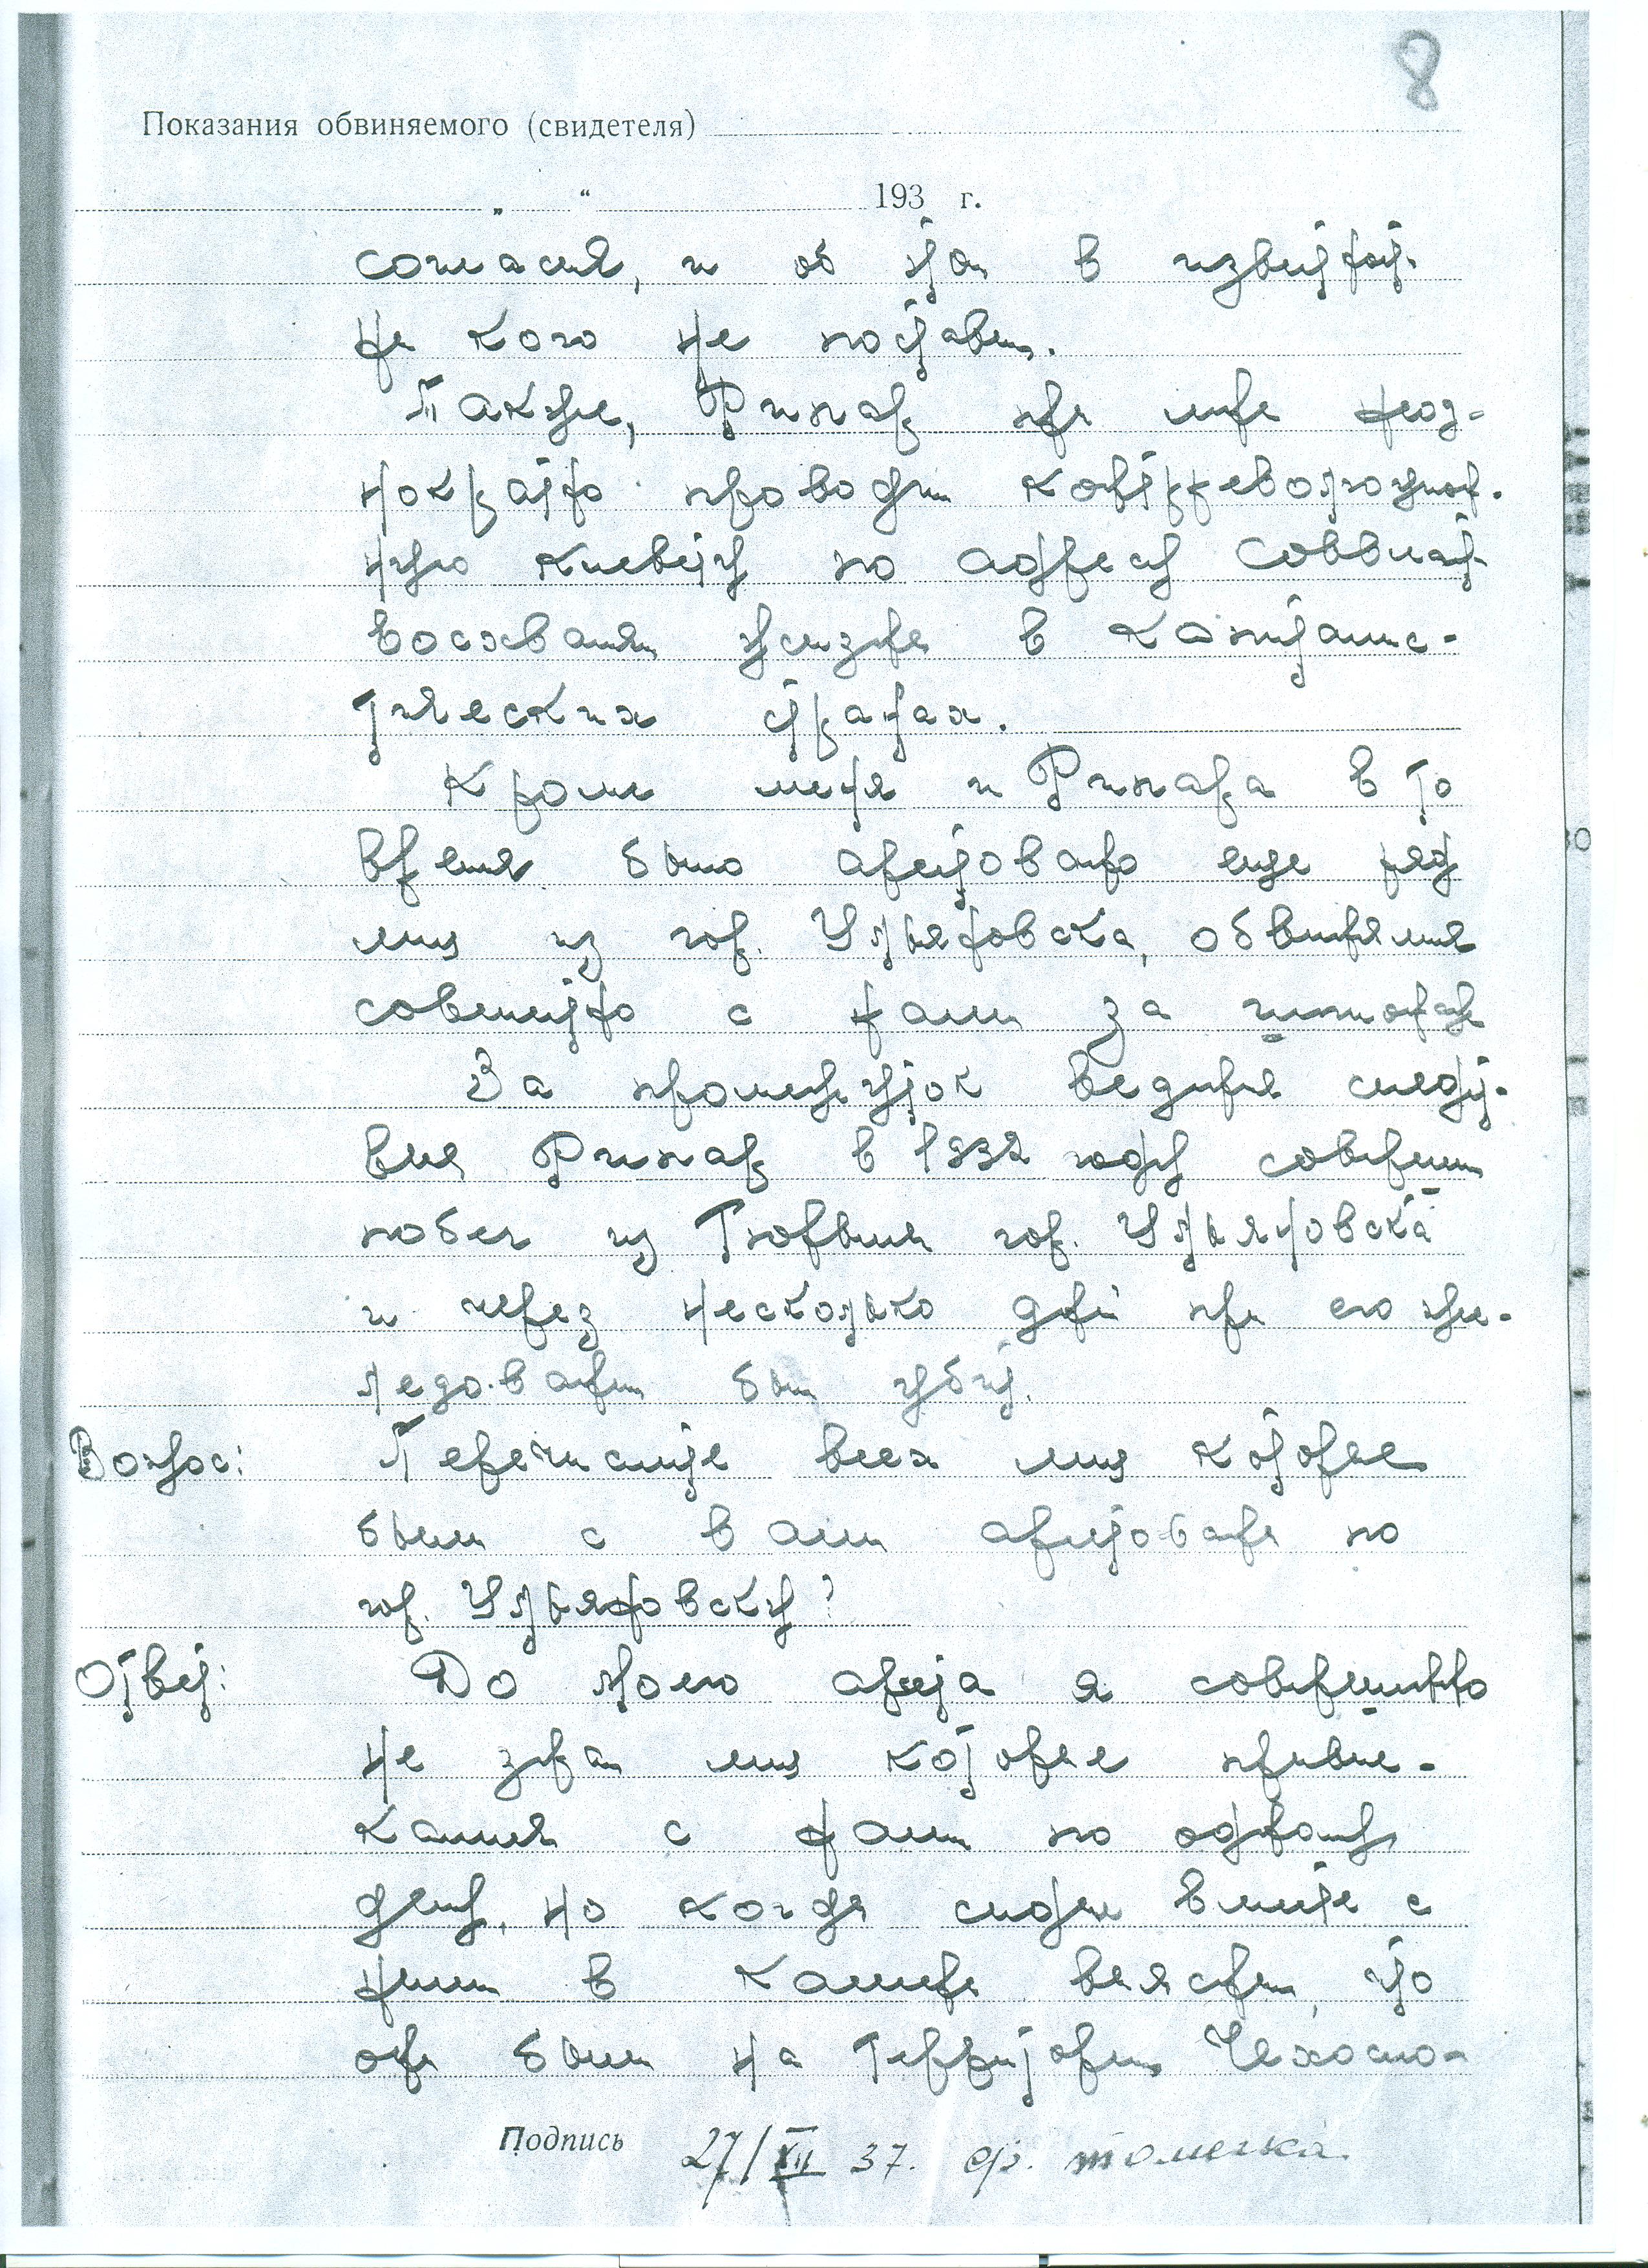 8
Показания обвиняемого (свидетеля)
„ “ 193 г.
согласия, и об этом в известнос-
не кого не поставил.
Также, Рипар при мне неод-
нократно проводил контрреволюцион-
ную клевету по адресу Соввласт
восхвалял жизнь в капиталис-
тических странах.
Кроме меня и Рипара в то
время было арестовано еще ряд
лиц из гор. Ульяновска, обвиняемые
совместно с нами за шпионаж
За промежуток ведения следст-
вия Рипар в 1932 году совершил
побег из Тюрьмы гор. Ульяновска
и через несколько дней при его
был убит.
Вопрос: Перечислите всех лиц которые
были с вами арестованы по
гор. Ульяновску?
Ответ: До моего ареста я совершенно
не знал лиц которые привле-
кались с нами по одному
делу, но когда сидели вместе с
ними в камере выяснил, что
они были на территории Чехосло-
Подпись 27/XII 37. фр. томечка